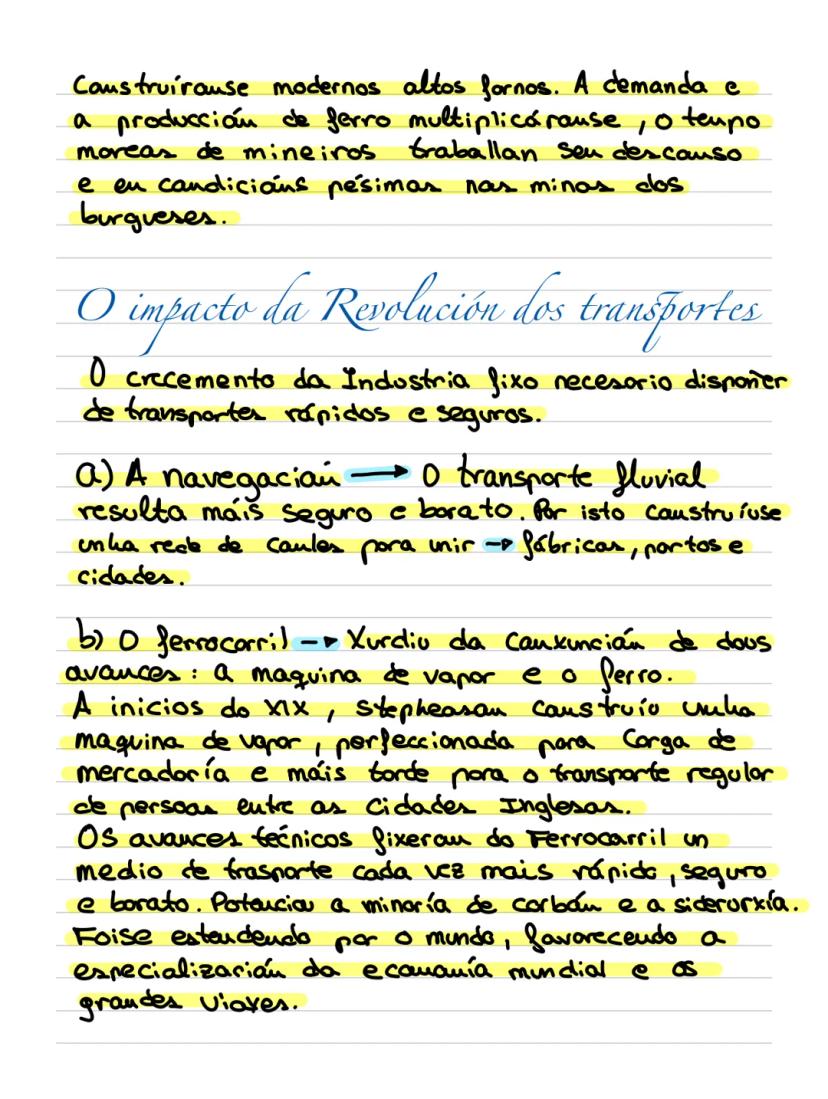 Construíronse modernos altos fornos. A demanda e
a producción de ferro multiplicáronse, o tempo
moreas de mineiros traballan sen descanso
e en condicións pésimas nas minas dos
burgueses.
O impacto da Revolución dos transportes
O crecemento da Industria fixo necesario dispoñer
de transportes rápidos e seguros.
a) A navegación → O transporte fluvial
resulta máis seguro e barato. Por isto construíuse
unha rede de canles para unir → fábricas, portos e
cidades.
b) O ferrocarril → Xurdiu da conxunción de dous
avances: a maquina de vapor e o ferro.
A inicios do XIX, Stepheason construío unha
maquina de vapor, perfeccionada para carga de
mercadoría e máis tarde para o transporte regular
de persoas entre as cidades Inglesas.
Os avances técnicos fixeron do Ferrocarril un
medio de trasporte cada vez mais rápido, seguro
e barato. Potenciou a minaría de carbón e a siderurxía.
Foise estendendo por o mundo, favorecendo a
especialización da economía mundial e os
grandes viaxes.